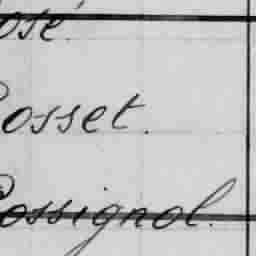 osé.
osset.
ossignol.